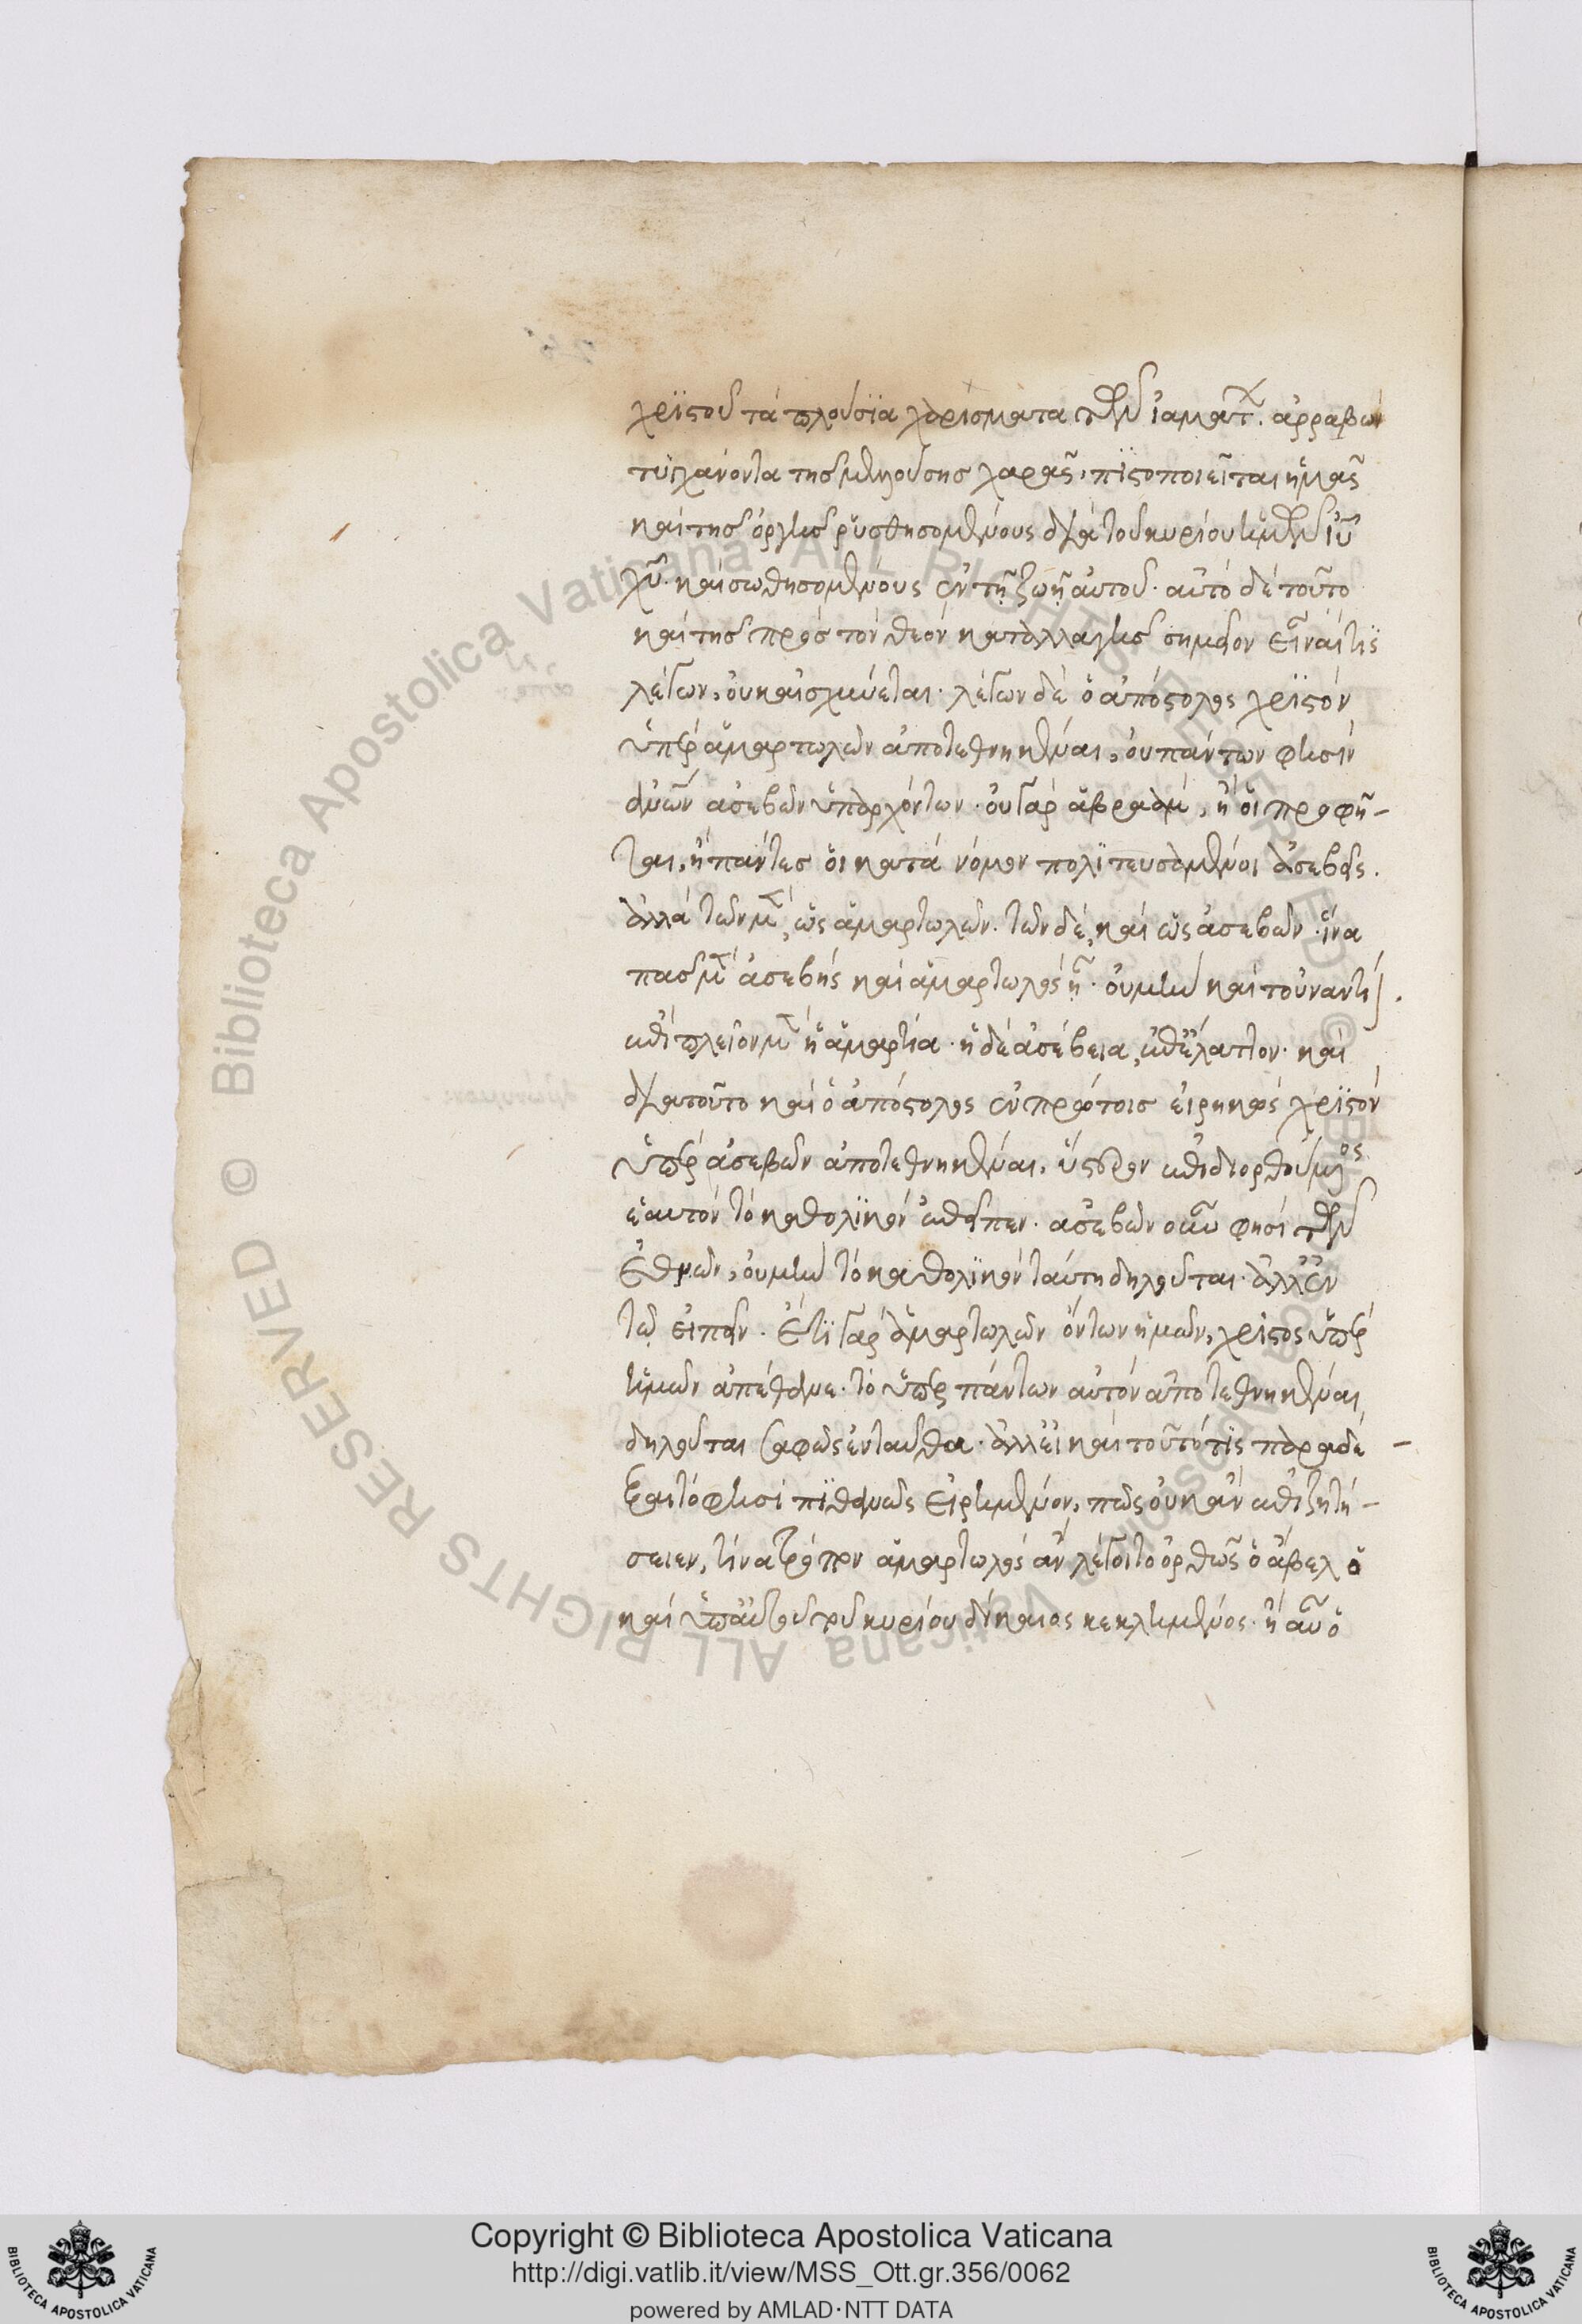 χριστοῦ τὰ πλούσια χαρίσματα τῶν ἰαμάτ. ἀρραβὼν
τυγχάνοντα τῆς μελλούσης χαρᾶς, πιστοποιεῖται ἡμᾶς
καὶ τῆς ὀργῆς ῥυσθησομένους διὰ τοῦ κυρίου ἡμῶν ἰῦ
χῦ. καὶ σωθησομένους ἐν τῇ ζωῇ αὐτοῦ. αὐτὸ δὲ τοῦτο
καὶ τῆς πρὸς τὸν θεὸν καταλλαγῆς σημεῖον εἶναί τις
λέγων, οὐκ αἰσχύνεται. λέγων δὲ ὁ ἀπόστολος χριστὸν
ὑπὲρ ἁμαρτωλῶν ἀποτεθνηκέναι, οὐ πάντων φησὶν
ἀνῶν ἀσεβῶν ὑπαρχόντων. οὐ γὰρ ἀβραὰμ, ἢ οἱ προφῆ-
ται, ἢ πάντες οἱ κατὰ νόμον πολιτευσάμενοι ἀσεβεῖς.
ἀλλὰ τῶν μὲν, ὡς ἁμαρτωλῶν. τῶν δὲ, καὶ ὡς ἀσεβῶν. ἵνα
πᾶς μὲν ἀσεβὴς καὶ ἁμαρτωλὸς ᾖ. οὐ μὴν καὶ τοὐναντί
ἐπὶ πλεῖον μὲν ἡ ἁμαρτία. ἡ δὲ ἀσέβεια, ἐπ' ἔλαττον. καὶ
διατοῦτο καὶ ὁ ἀπόστολος ἐν πρώτοις εἰρηκὼς χριστὸν
ὑπὲρ ἀσεβῶν ἀποτεθνηκέναι, ὕστερον ἐπιδιορθούμενος
ἑαυτὸν τὸ καθολικὸν ἐπεῖπεν. ἀσεβῶν οὖν φησὶ τῶν
ἐθνῶν, οὐ μὴν τὸ καθολικὸν ταύτῃ δηλοῦται. ἀλλ' ἐν
τῷ εἰπεῖν. ἔτι γὰρ ἁμαρτωλῶν ὄντων ἡμῶν, χριστὸς ὑπὲρ
ἡμῶν ἀπέθανε. τὸ ὑπὲρ πάντων αὐτὸν ἀποτεθνηκέναι
δηλοῦται σαφῶς ἐνταῦθα. ἀλλ' εἰ καὶ τοῦτό τις παραδέ-
ξαιτό φησι πιθανῶς εἰρημένον, πῶς οὐκ ἂν ἐπιζητή-
σειεν, τίνα τρόπον ἁμαρτωλὸς ἂν λέγοιτο ὀρθῶς ὁ ἄβελ ὁ
καὶ ὑπ' αὐτοῦ τοῦ κυρίου δίκαιος κεκλημένος. ἢ αὖ ὁ
Copyright © Biblioteca Apostolica Vaticana
http://digi.vatlib.it/view/MSS_Ott.gr.356/0062
powered by AMLAD·NTT DATA